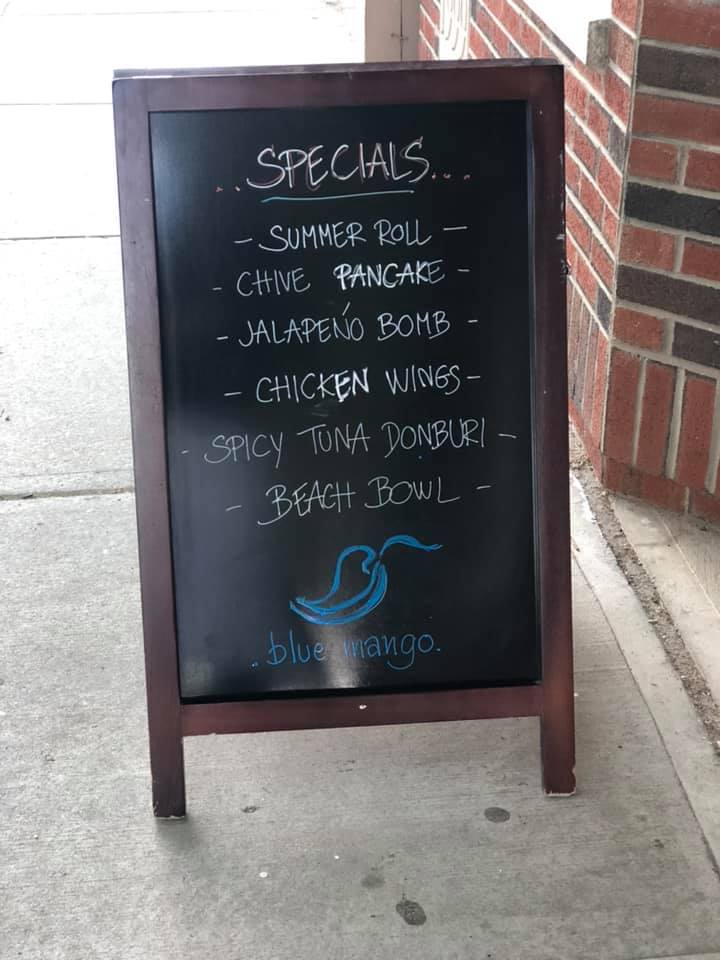 ..SPECIALS...
- SUMMER ROLL -
- CHIVE PANCAKE -
- JALAPEÑO BOMB -
- CHICKEN WINGS -
- SPICY TUNA DONBURI -
- BEACH BOWL -
. blue mango.